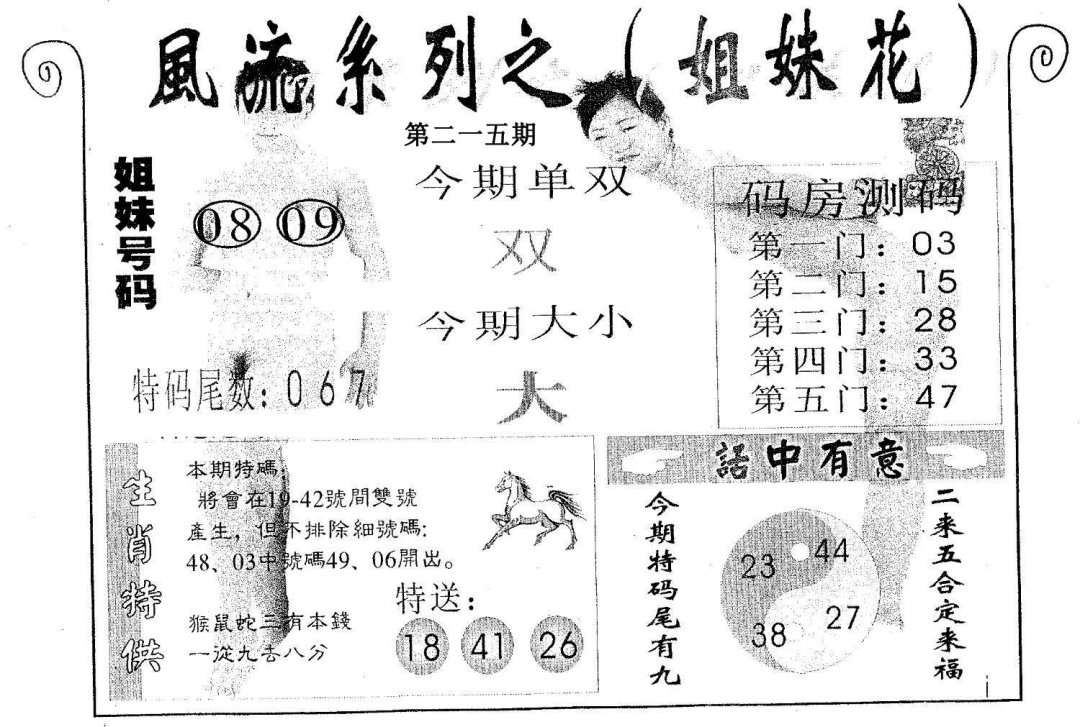 風流系列之（姐妹花）
第二一五期
姐妹号码
08 09
今期单双
双
今期大小
大
特码尾数：067
码房测码
第一门：03
第二门：15
第三门：28
第四门：33
第五门：47
生肖特供
本期特碼：
將會在19-42號間雙號
產生，但不排除細號碼：
48、03中號碼49、06開出。
猴鼠蛇三有本錢
一從九去八分
特送：
18 41 26
話中有意
今期特码尾有九
23 44
38 27
二来五合定来福